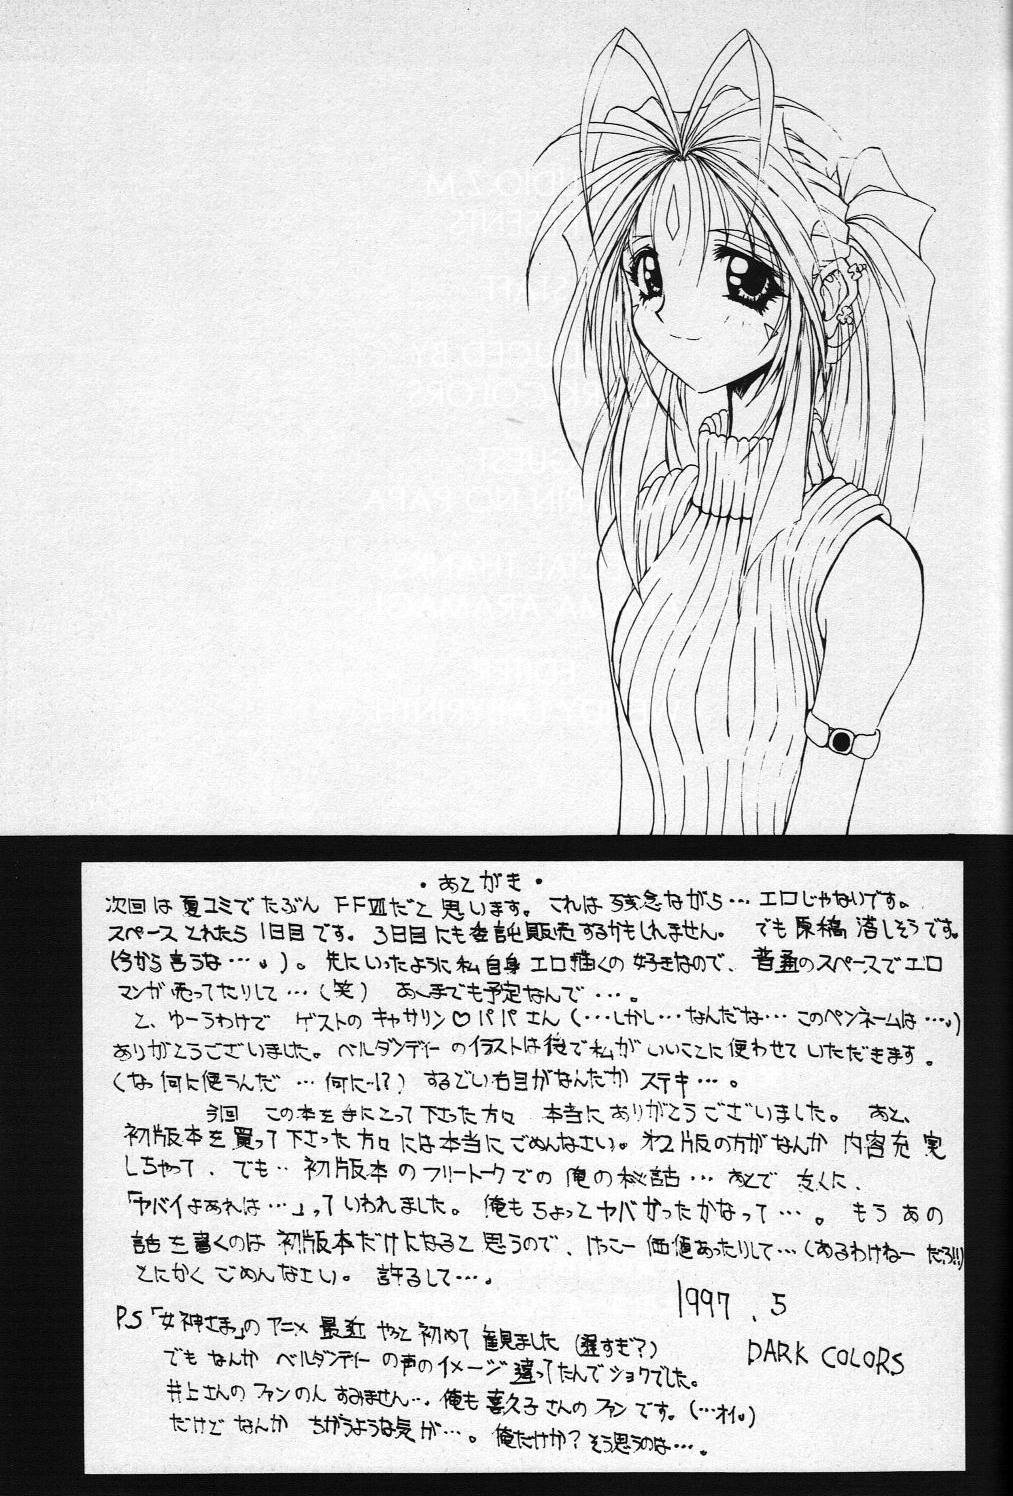 ・あとがき・
次回は夏コミでたぶん FFⅦだと思います。これは残念ながら…エロじゃないです。
スペースとれたら1日目です。3日目にも委託販売するかもしれません。でも原稿落しそうです。
(今から言うな…。)。先にいったように私自身エロ描くの好きなので、普通のスペースでエロ
マンガ売ってたりして…(笑) あくまでも予定なんで…。
と、ゆーうわけで ゲストの キャサリン♡パパさん (…しかし…なんだな…このペンネームは…。)
ありがとうございました。ベルダンディーのイラストは後で私がいいことに使わせていただきます。
(なっ何に使うんだ…何に…!?) するどい右目がなんだか ステキ…。
今回 この本を手にとって下さった方々 本当にありがとうございました。あと、
初版本を買って下さった方々には本当にごめんなさい。オ2版の方がなんか 内容充実
しちゃって、でも… 初版本のフリートークでの俺の秘話… あとで 友人に、
「ヤバイよあれは…」っていわれました。俺もちょっとヤバかったかなって…。もう あの
話を書くのは 初版本だけになると思うので、けっこー価値あったりして…(あるわけねーだろ!!)
とにかく ごめんなさい。許るして…。
1997.5
P.S「女神さまっ」のアニメ 最近 やっと初めて観ました (遅すぎ?)
DARK COLORS
でもなんか ベルダンディーの声のイメージ違ってたんでショクでした。
井上さんのファンの人すみません… 俺も喜久子さんのファンです。(…オイ。)
だけど なんか ちがうような気が…。俺だけか? そう思うのは…。